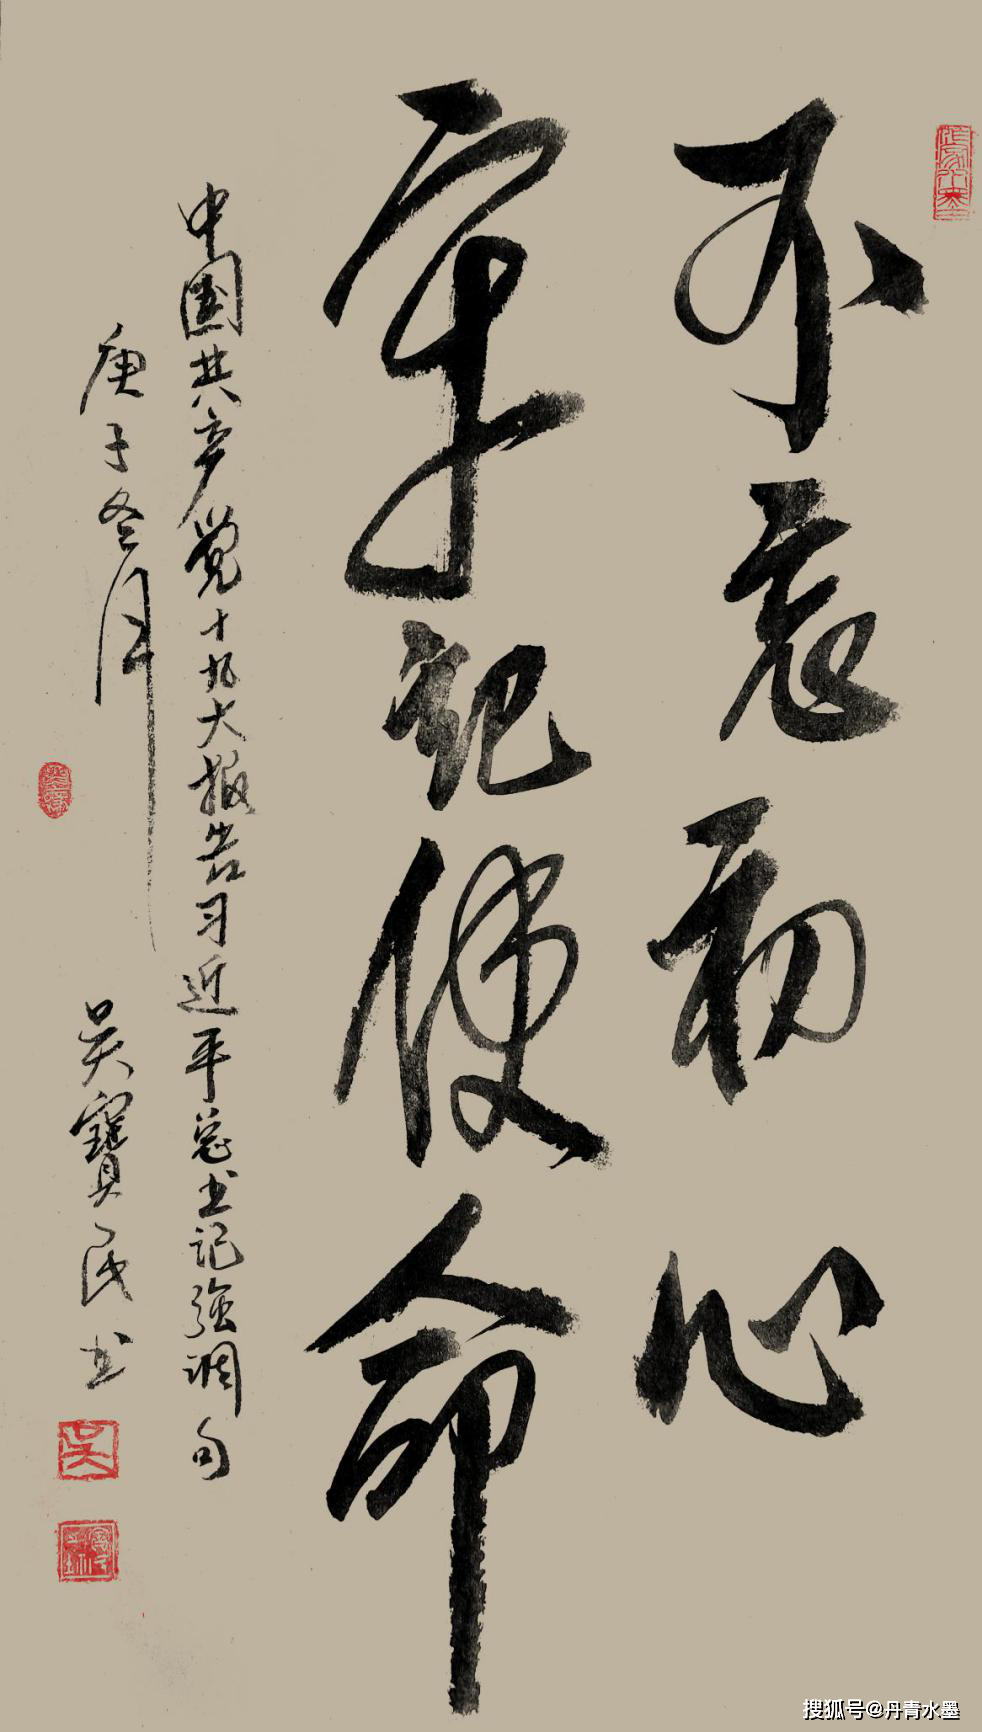 不忘初心
牢记使命
中国共产党十九大报告习近平总书记强调句
庚子冬月 吴寳民书
吴
搜狐号@丹青水墨